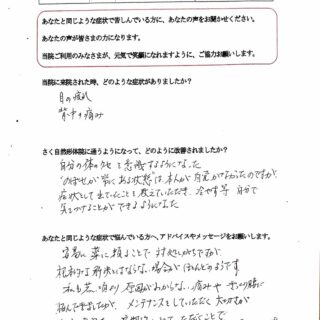 あなたと同じような症状で苦しんでいる方に、あなたの声をお聞かせください。
あなたの声が皆さまの力になります。
当院ご利用のみなさまが、元気で笑顔になれますように、ご協力お願いします。
当院に来院された時、どのような症状がありましたか?
目の疲れ
背中の痛み
さく自然形体院に通うようになって、どのように改善されましたか?
自分の体のクセを意識するようになった
"のぼせが常にある状態"は本人が自覚がなかったのですが、
症状として出ていたことを教えていただき、冷やす等自分で
気をつけることができるようになった
あなたと同じような症状で悩んでいる方へ、アドバイスやメッセージをお願いします。
容易に薬に頼ることで対処しがちですが、
根本的な解決にはならない場合がほとんどのようです
私も若い頃から原因がわからない痛みや
悩んで来ましたが、メンテナンスをしていただく大切さが